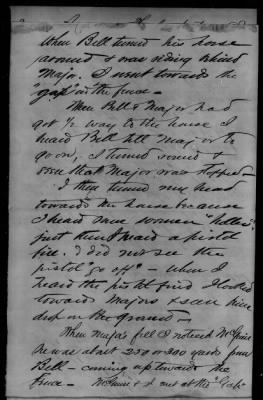 When Bell turned his horse
around & was riding behind
Major. I went towards the
"gap" in the fence -
When Bell & Major had
got ½ way to the house I
heard Bell tell Major to
go on, I turned round &
seen that Major was stopped -
I then turned my head
towards the house because
I heard some women "holler"
just then I heard a pistol
fire. I did not see the
pistol "go off" - when I
heard the pistol fired I looked
toward Majors & seen him
drop on the ground -
When Major fell I noticed McGuire
he was about 250 or 300 yards from
Bell - coming up towards the
fence - McGuire & I met at the "Gap"